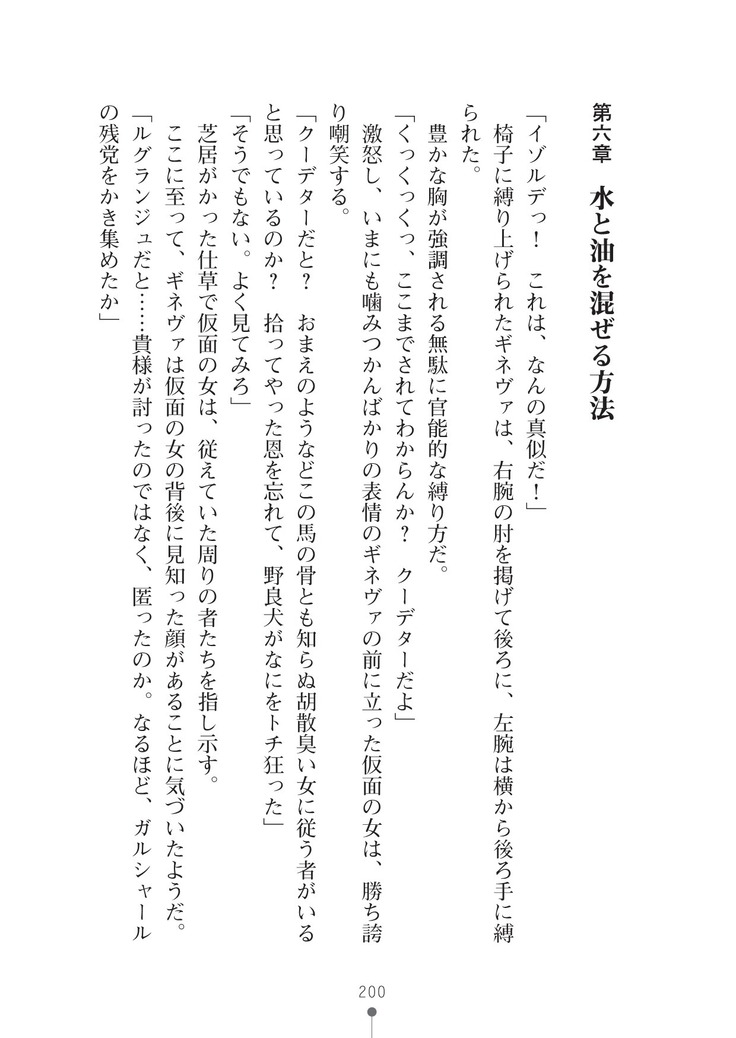 第六章　水と油を混ぜる方法
「イゾルデっ！　これは、なんの真似だ！」
　椅子に縛り上げられたギネヴァは、右腕の肘を掲げて後ろに、左腕は横から後ろ手に縛
られた。
　豊かな胸が強調される無駄に官能的な縛り方だ。
「くっくっくっ、ここまでされてわからんか？　クーデターだよ」
　激怒し、いまにも噛みつかんばかりの表情のギネヴァの前に立った仮面の女は、勝ち誇
り嘲笑する。
「クーデターだと？　おまえのようなどこの馬の骨とも知らぬ胡散臭い女に従う者がいる
と思っているのか？　拾ってやった恩を忘れて、野良犬がなにをトチ狂った」
「そうでもない。よく見てみろ」
　芝居がかった仕草で仮面の女は、従えていた周りの者たちを指し示す。
　ここに至って、ギネヴァは仮面の女の背後に見知った顔があることに気づいたようだ。
「ルグランジュだと……貴様が討ったのではなく、匿ったのか。なるほど、ガルシャール
の残党をかき集めたか」
200